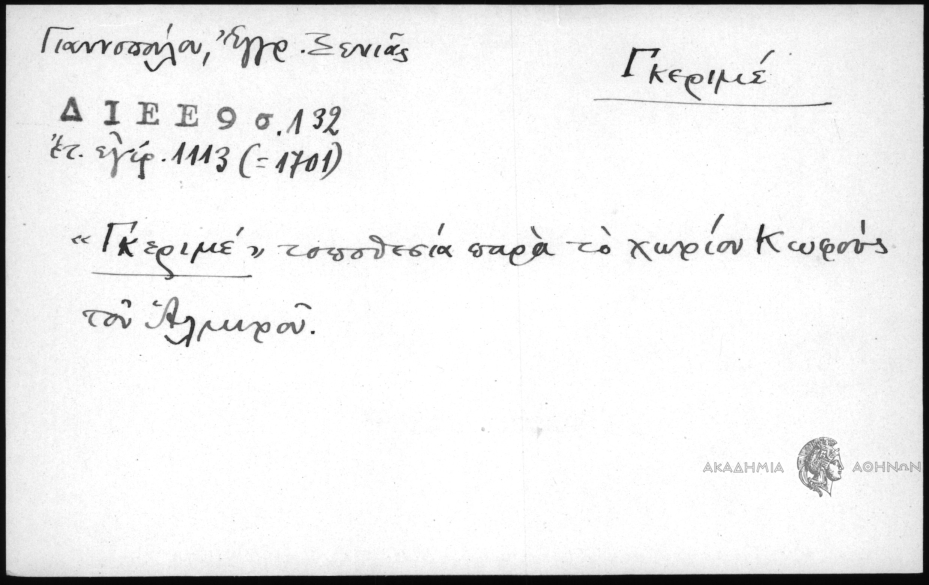 Γιαννοπούλου, Ἔγγρ. Ξενιᾶς
Γκεριμέ
Δ Ι Ε Ε 9 σ. 132
ἔτ. ἐγίρ. 1113 (= 1701)
"Γκεριμέ" τοποθεσία παρὰ τὸ χωρίον Κωφούς
τοῦ Ἁλμυροῦ.
ΑΚΑΔΗΜΙΑ ΑΘΗΝΩΝ